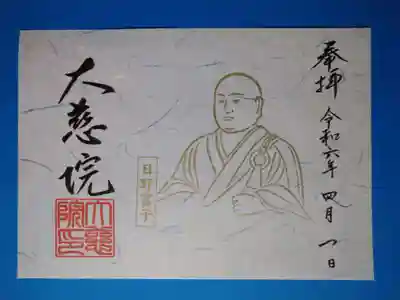 奉拝 令和六年 四月一日
日野富子
大慈院
大慈院印